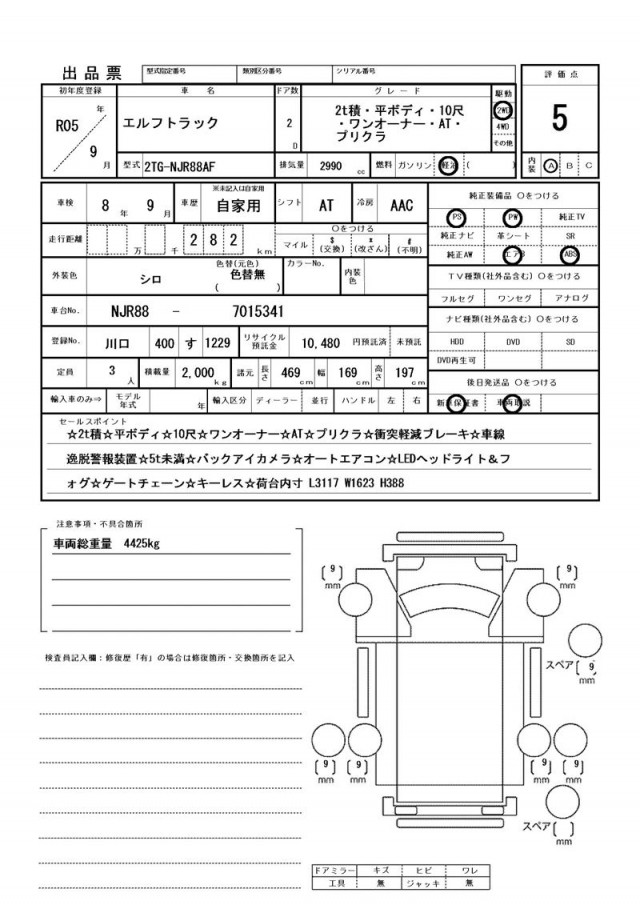 出品票 型式指定番号 類別区分番号 シリアル番号
初年度登録 車名 ドア数 グレード 駆動 評価点
R05 年 9 月 エルフトラック 2 D 2t積・平ボディ・10尺 2WD 5
・ワンオーナー・AT・ 4WD
プリクラ その他
型式 2TG-NJR88AF 排気量 2990 cc 燃料 ガソリン 軽油 ( ) 内装 A B C
車検 8 年 9 月 車歴 ※未記入は自家用 自家用 シフト AT 冷房 AAC 純正装備品 〇をつける
PS PW 純正TV
走行距離 万 千 2 8 2 km 〇をつける マイル $ (交換) * (改ざん) # (不明) 純正ナビ 革シート SR
純正AW エアB ABS
外装色 シロ 色替(元色) 色替無 ( ) カラーNo. 内装色 TV種類(社外品含む) 〇をつける
フルセグ ワンセグ アナログ
車台No. NJR88 - 7015341 ナビ種類(社外品含む) 〇をつける
登録No. 川口 400 す 1229 リサイクル預託金 10,480 円預託済 未預託 HDD DVD SD
DVD再生可
定員 3 人 積載量 2,000 kg 諸元 長さ 469 cm 幅 169 cm 高さ 197 cm 後日発送品 〇をつける
輸入車のみ⇒ モデル年式 年 輸入区分 ディーラー 並行 ハンドル 左 右 新車保証書 車両取説
セールスポイント
☆2t積☆平ボディ☆10尺☆ワンオーナー☆AT☆プリクラ☆衝突軽減ブレーキ☆車線
逸脱警報装置☆5t未満☆バックアイカメラ☆オートエアコン☆LEDヘッドライト＆フ
ォグ☆ゲートチェーン☆キーレス☆荷台内寸 L3117 W1623 H388
注意事項・不具合箇所
車両総重量 4425kg
検査員記入欄：修復歴「有」の場合は修復箇所・交換箇所を記入
[9] mm [9] mm
スペア [9] mm
[9] mm [9] mm [9] mm [9] mm
スペア [ ] mm
ドアミラー キズ ヒビ ワレ
工具 無 ジャッキ 無